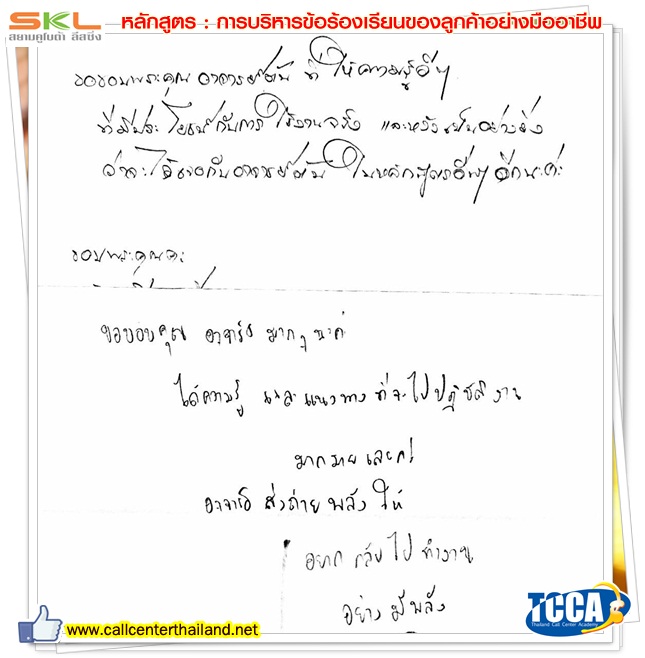 SKL หลักสูตร : การบริหารข้อร้องเรียนของลูกค้าอย่างมืออาชีพ
สยามคูโบต้า ลีสซิ่ง
ขอขอบพระคุณ อาจารย์ ที่ ให้ความรู้ดีๆ
ที่มีประโยชน์กับการ ใช้งานจริง และหวังเป็นอย่างยิ่ง
ว่าจะได้เจอกับอาจารย์ ในหลักสูตรอื่นๆ อีกนะคะ
ขอบพระคุณคะ
ขอขอบคุณ อาจารย์ มากๆ นะค่ะ
ได้ความรู้ และ แนวทาง ที่จะไปปฏิบัติงาน
มากมายเลยค่ะ
อาจารย์ ส่งถ่าย พลัง ให้
อยาก กลับไป ทำงาน
อย่าง มีพลัง
TCCA
Thailand Call Center Academy
www.callcenterthailand.net